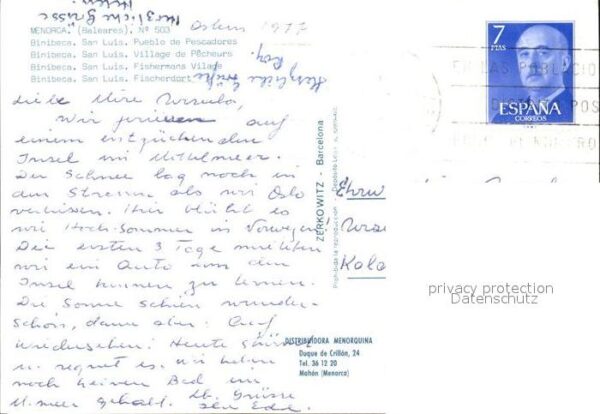 Herzliche Grüsse
Ostern 1977
MENORCA. (Baleares). Nº 503
Binibeca. San Luis. Pueblo de Pescadores
Binibeca. San Luis. Village de Pêcheurs
Binibeca. San Luis. Fishermans Vilage
Binibeca. San Luis. Fischerdorf
Herzliche Grüße
7
PTAS
ESPAÑA
CORREOS
Liebe Ursula,
Wir auf
einem entzückenden
Insel im Mittelmeer.
Der Schnee lag noch in
den Strassen als wir Oslo
verliessen. Hier blüht es
wie Hoch-Sommer in Norwegen!
Die ersten 3 Tage mieteten
wir ein Auto um die
Insel kennen zu lernen.
Die Sonne schien wunder-
schön, dann aber: Auf
wiedersehen! Heute stürmt
u. regnet es. wir haben
noch keinen Bad im
M.meer gehabt. Lb. Grüsse
ZERKOWITZ - Barcelona
Prohibida la reproducción
DISTRIBUIDORA MENORQUINA
Duque de Crillón, 24
Tel. 36 12 20
Mahón (Menorca)
privacy protection
Datenschutz